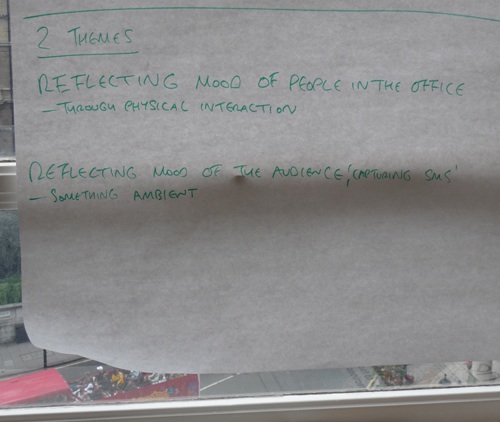 2 THEMES
REFLECTING MOOD OF PEOPLE IN THE OFFICE
— THROUGH PHYSICAL INTERACTION
REFLECTING MOOD OF THE AUDIENCE, 'CAPTURING SMS'
— SOMETHING AMBIENT